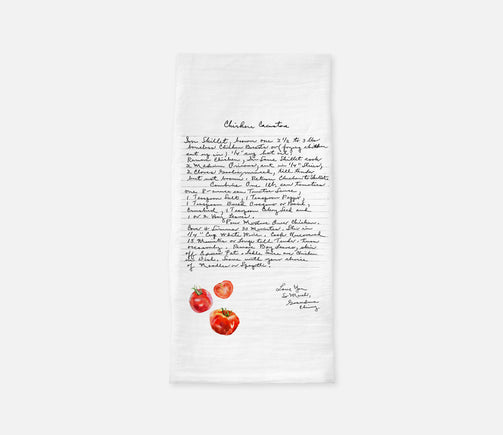 Chicken
In Skillet brown one 2 1/2 to 3 lbs
boneless Chicken Breasts or frying chicken
cut up in 1/4 cup hot oil.
Remove Chicken, In Same Skillet cook
2 Medium Onions, cut in 1/4" Slices,
2 Cloves Garlic, minced, till tender
but not brown. Return Chicken to Skillet
Combine One lb. can Tomatoes
one 8-ounce can Tomato Sauce,
1 Teaspoon Salt, 1 Teaspoon Pepper,
1 Teaspoon Dried Oregano or Basil,
Crushed, 1 Teaspoon Celery Seed and
1 or 2 Bay leaves.
Pour Mixture Over Chicken.
Cover & Simmer 30 Minutes. Stir in
1/4 Cup White Wine. Cook Uncovered
15 Minutes or longer till Tender. turn
occasionally. Remove Bay Leaves, skim
off Excess Fat. Ladle sauce over Chicken
in Dish. Serve with your choice
of Noodles or Spagetti.
Love You
So Much,
Grandma